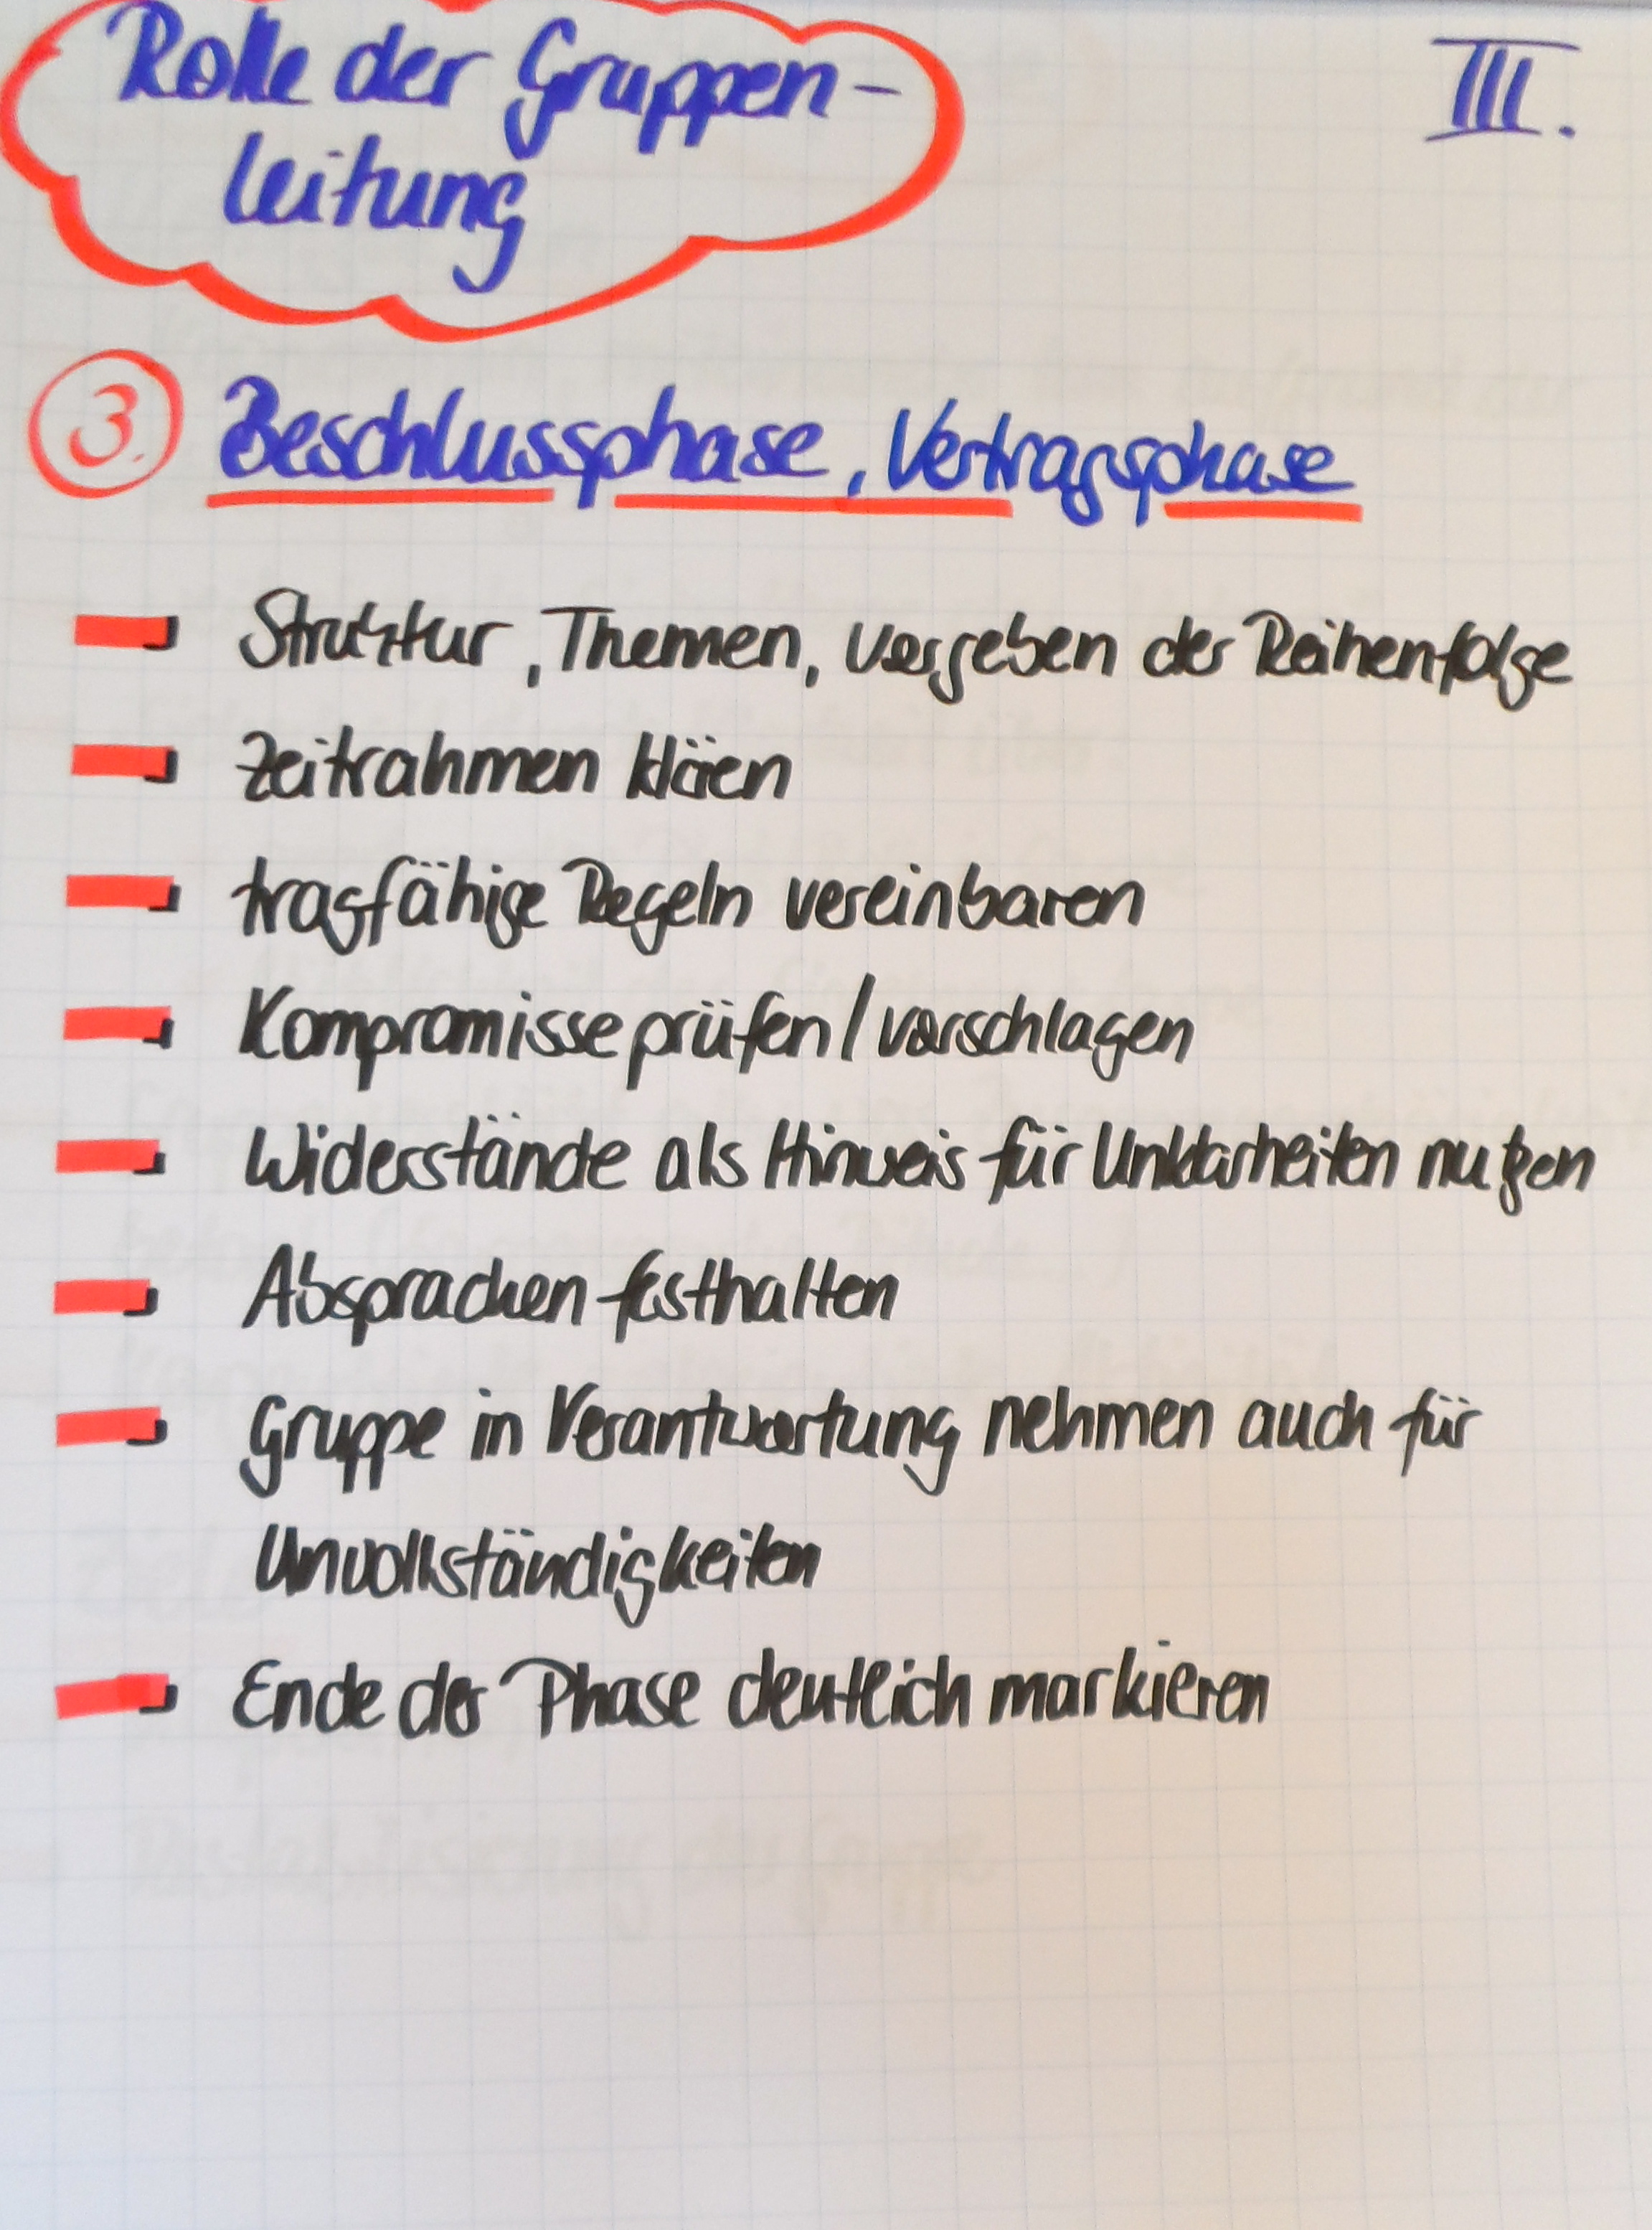 Rolle der Gruppen-
leitung
III.
3. Beschlussphase, Vertragsphase
Struktur, Themen, vorgeben der Reihenfolge
Zeitrahmen klären
tragfähige Regeln vereinbaren
Kompromisse prüfen / vorschlagen
Widerstände als Hinweis für Unklarheiten nutzen
Absprachen festhalten
Gruppe in Verantwortung nehmen auch für
Unvollständigkeiten
Ende der Phase deutlich markieren